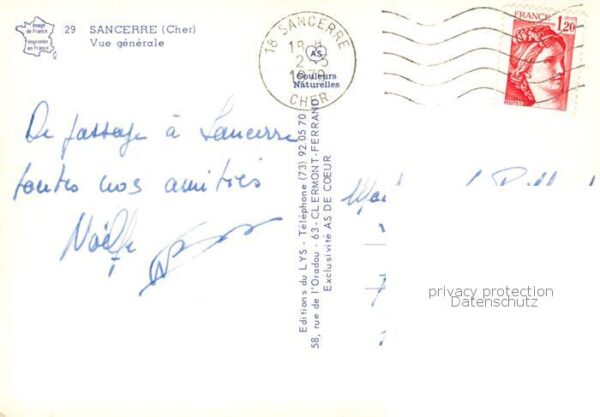 Image
de France
Imprimée
en France
29 SANCERRE (Cher)
Vue générale
18 SANCERRE
18 H
2 - 5
1979
CHER
AS
Couleurs
Naturelles
FRANCE
1,20
POSTES
De passage à Sancerre
toutes nos amitiés
Noëlle
Editions du LYS - Téléphone (73) 92 05 70
58, rue de l'Oradou - 63 - CLERMONT-FERRAND
Exclusivité AS DE CŒUR
privacy protection
Datenschutz